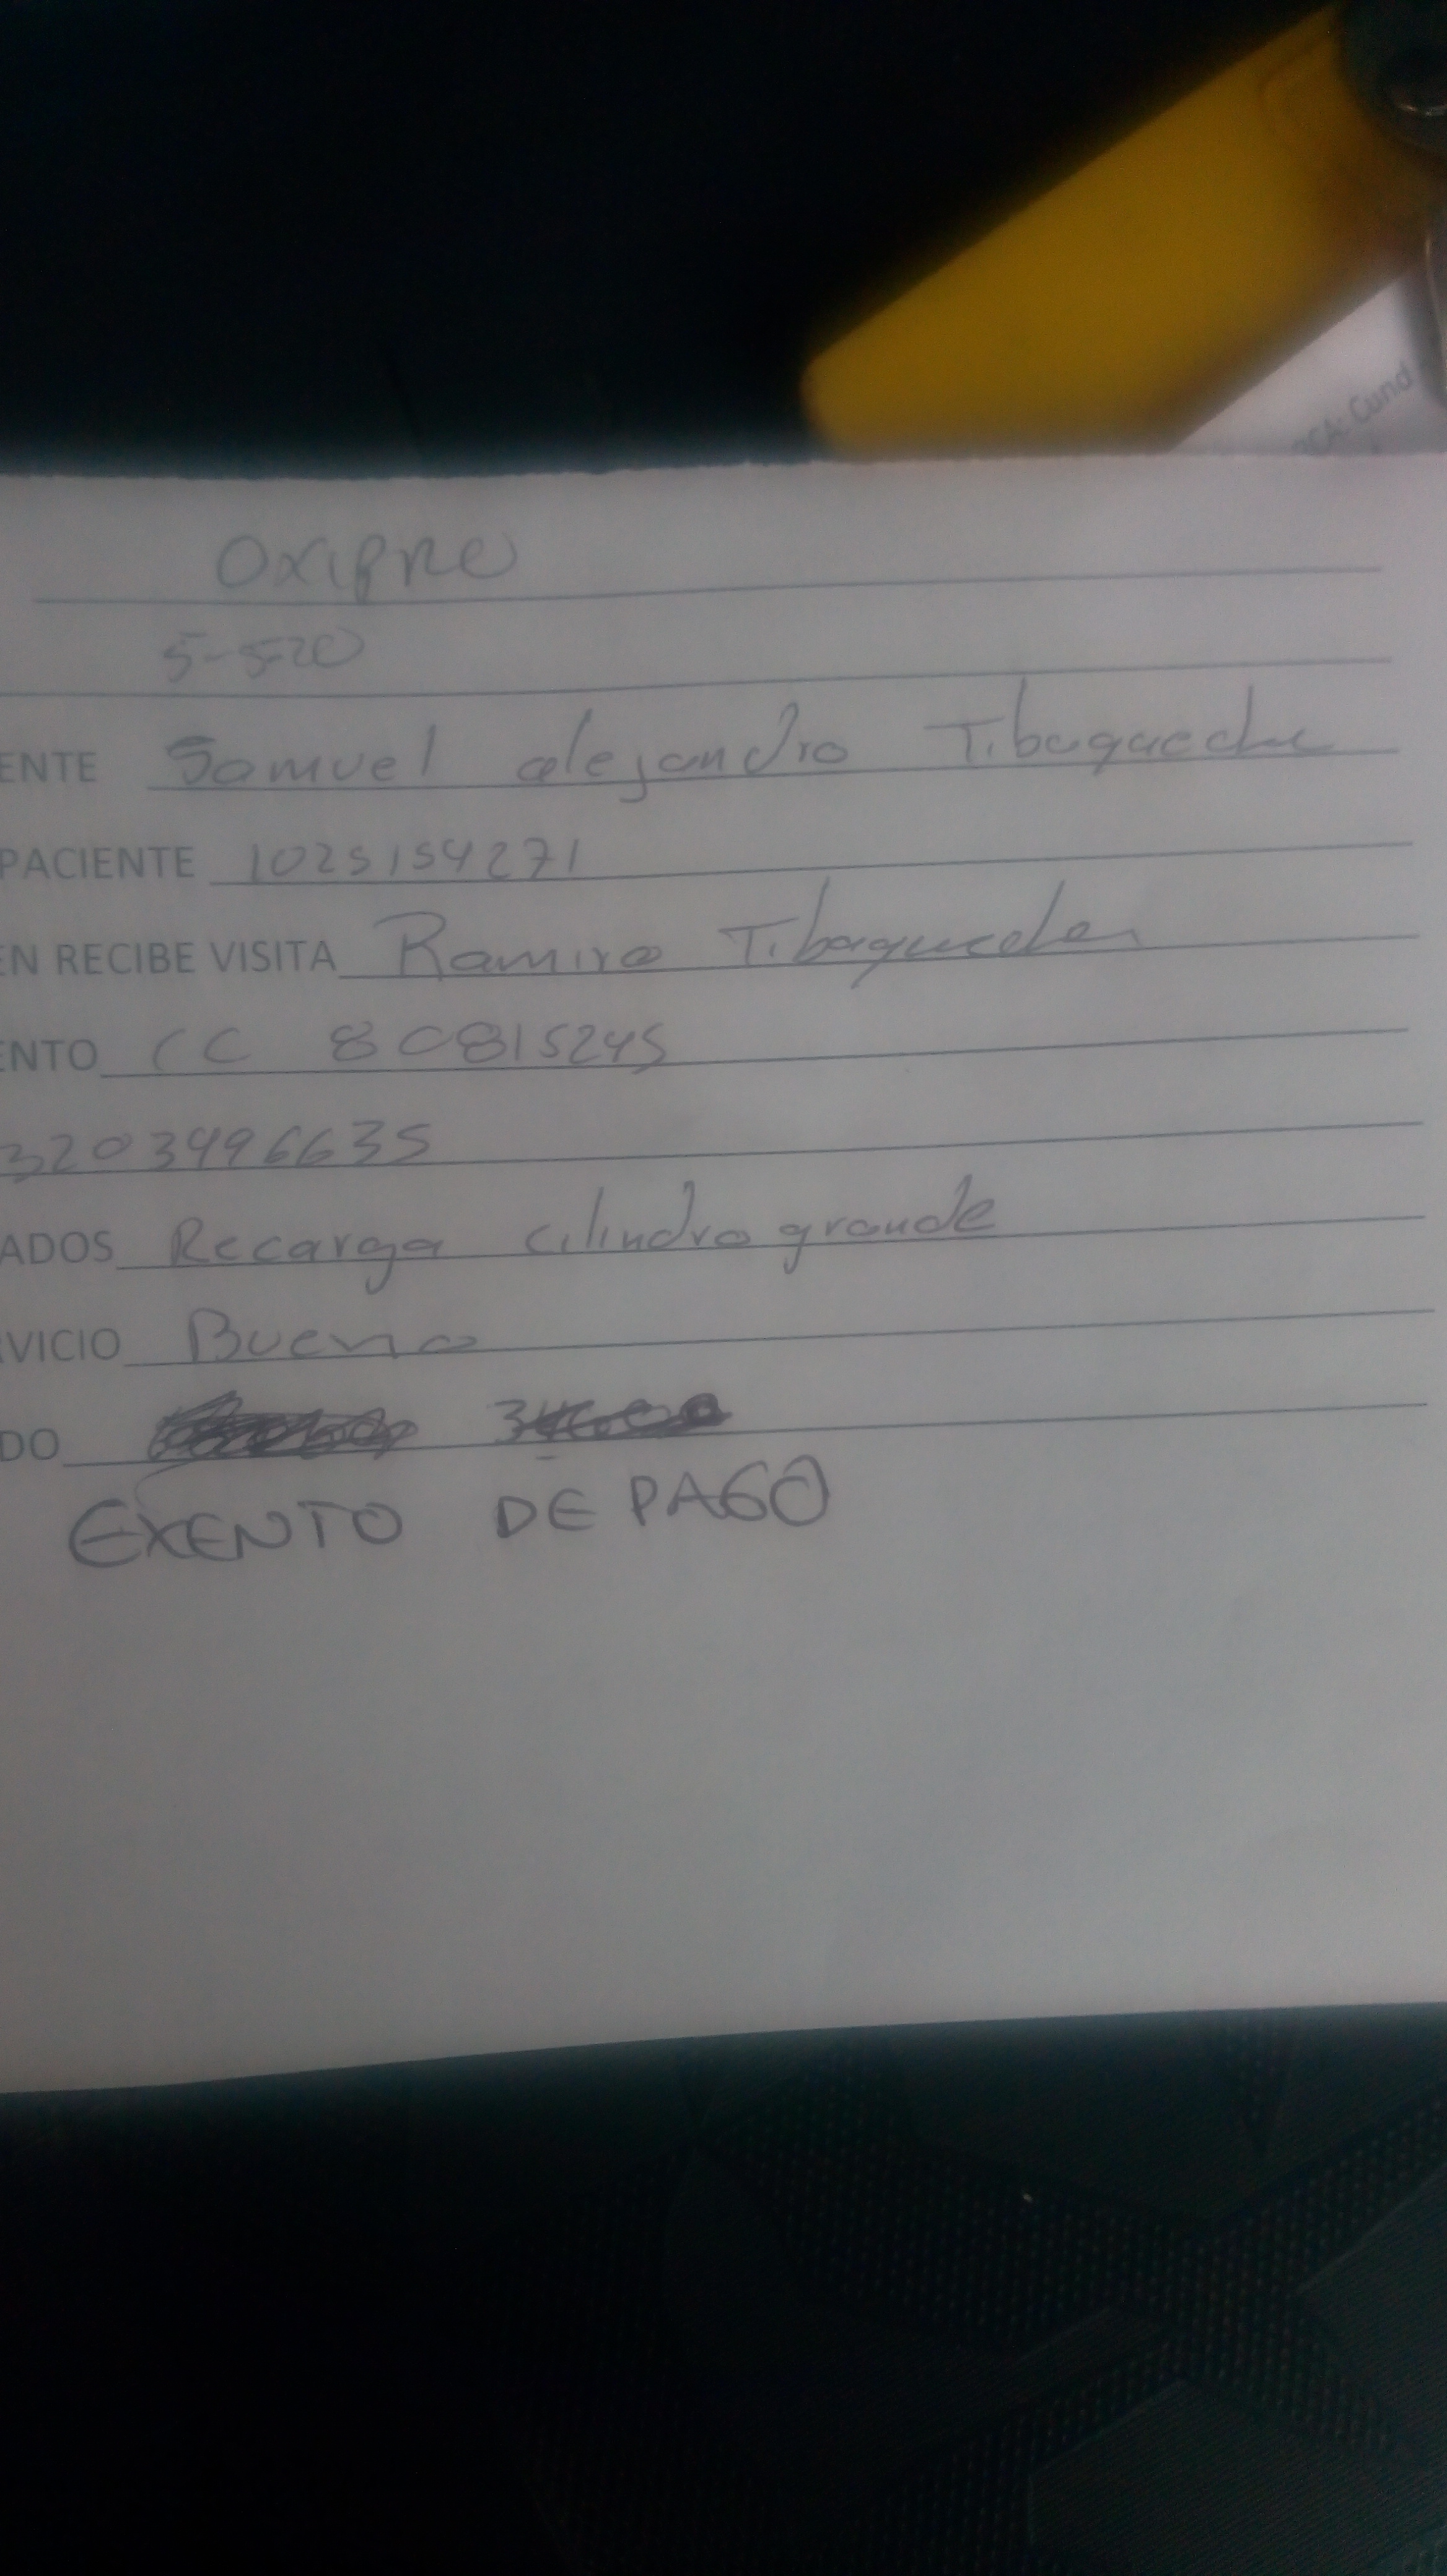 CA: Cund
Oxipro
5-5-20
ENTE Samuel alejandro Tibaquecha
PACIENTE 1025154271
EN RECIBE VISITA Ramiro Tibaquecha
ENTO CC 80815245
3203496635
ADOS Recarga cilindro grande
VICIO Bueno
DO
EXENTO DE PAGO